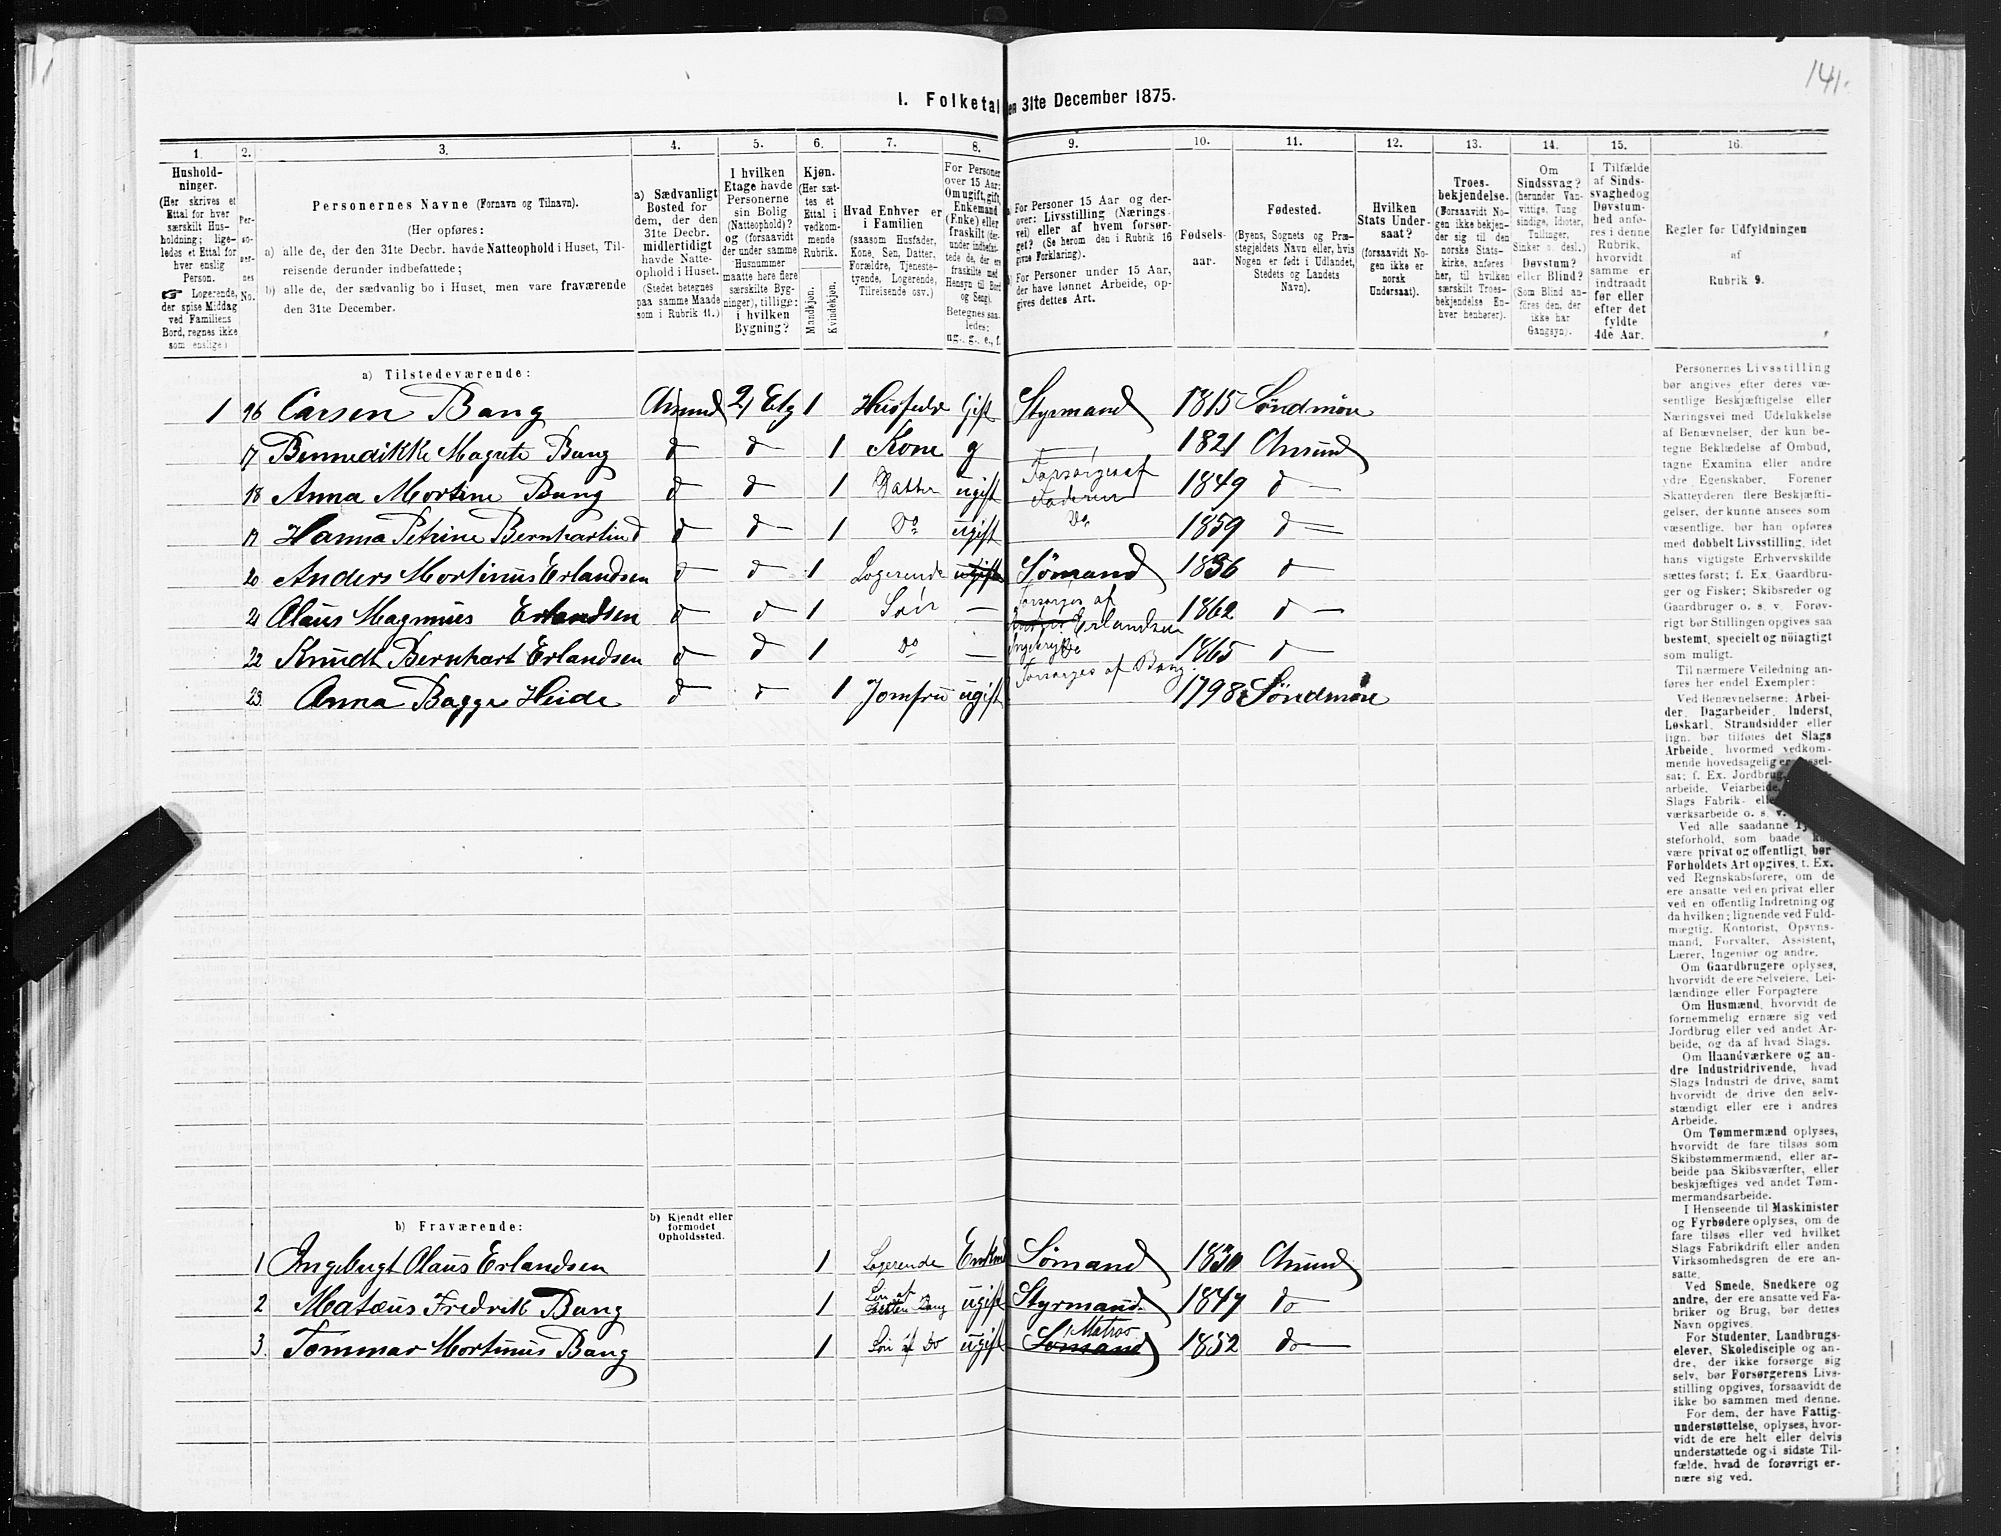 141.
I. Folketal den 31te December 1875.
1. 2. 3. 4. 5. 6. 7. 8. 9. 10. 11. 12. 13. 14. 15. 16.
Hushold-
ninger.
(Her skrives et
Ettal for hver
særskilt Hus-
holdning; lige-
ledes et Ettal for
hver enslig
Person.
☛ Logerende,
der spise Middag
ved Familiens
Bord, regnes ikke
som enslige)
Per-
so-
ner-
nes
No.
Personernes Navne (Fornavn og Tilnavn).
(Her opføres:
a) alle de, der den 31te Decbr. havde Natteophold i Huset, Til-
reisende derunder indbefattede;
b) alle de, der sædvanlig bo i Huset, men vare fraværende
den 31te December.
a) Sædvanligt
Bosted for
dem, der den
31te Decbr.
midlertidigt
havde Natte-
ophold i Huset.
(Stedet betegnes
paa samme Maade
som i Rubrik 11.)
I hvilken
Etage havde
Personerne
sin Bolig
(Natteophold)?
og (forsaavidt
der under samme
Husnummer
maatte høre flere
særskilte Byg-
ninger), tillige:
i hvilken
Bygning?
Kjøn.
(Her sæt-
tes et
Ettal i
vedkom-
mende
Rubrik.
Mandkjøn.
Kvindekjøn.
Hvad Enhver er
i Familien
(saasom Husfader,
Kone, Søn, Datter,
Forældre, Tjeneste-
tyende, Logerende,
Tilreisende osv.)
For Personer
over 15 Aar:
Om ugift, gift,
Enkemand
(Enke) eller
fraskilt (der-
under indbefat-
tede de, der ere
fraskilte med
Hensyn til Bord
og Seng).
Betegnes saa-
ledes:
ug., g., e., f.
a) For Personer 15 Aar og der-
over: Livsstilling (Nærings-
vei) eller af hvem forsør-
get? (Se herom den i Rubrik 16
givne Forklaring).
b) For Personer under 15 Aar,
der have lønnet Arbeide, op-
gives dettes Art.
Fødsels-
aar.
Fødested.
(Byens, Sognets og Præ-
stegjeldets Navn eller, hvis
Nogen er født i Udlandet,
Stedets og Landets
Navn).
Hvilken
Stats Under-
saat?
(forsaavidt No-
gen ikke er
norsk
Undersaat).
Troes-
bekjendelse.
(Forsaavidt No-
gen ikke bekjen-
der sig til den
norske Stats-
kirke, anføres
her, til hvilken
særskilt Troes-
bekjendelse En-
hver henhører).
Om
Sindssvag?
(herunder Van-
vittige, Tung-
sindige, Idioter,
Tullinger,
Sinker o. desl.)
Døvstum?
eller Blind?
(Som Blind an-
føres den, der
ikke har
Gangsyn).
I Tilfælde
af Sinds-
svaghed og
Døvstum-
hed anfø-
res i denne
Rubrik,
hvorvidt
samme er
indtraadt
før eller
efter det
fyldte
4de Aar.
Regler for Udfyldningen
af
Rubrik 9.
a) Tilstedeværende:
1 16 Carsen Bang Alesund 2 Etg 1 Husfader Gift Styrmand 1815 Søndmøre
17 Bennedikke Magrete Bang d d 1 Kone g 1821 Alesund
18 Anna Mortine Bang d d 1 Datter ugift Forsørges af Faderen 1849 d
19 Hanna Petrine Bernhartine d d 1 Do ugift Do 1859 d
20 Anders Mortinus Erlandsen d d 1 Logerende ugift Sømand 1836 d
21 Olaus Magnus Erlandsen d d 1 Søn — Forsørges af Erlandsen 1862 d
22 Knudt Bernhart Erlandsen d d 1 Do — Do 1865 d
23. Anna Bagge Heide d d 1 Jomfru ugift Forsørges af Bang. 1798 Søndmøre
b) Fraværende:
b) Kjendt eller
formodet
Opholdssted.
1 Ingebrigt Olaus Erlandsen 1 Logerende Enkemd Sømand 1830 Alesund
2 Matæus Fredrik Bang 1 Søn af Carsten Bang ugift Styrmand 1847 do
3. Tommas Mortinus Bang 1 Søn af Do ugift Sømand Matros 1852 do
Personernes Livsstilling
bør angives efter deres væ-
sentlige Beskjæftigelse eller
Næringsvei med Udelukkelse
af Benævnelser, der kun be-
tegne Beklædelse af Ombud,
tagne Examina eller andre
ydre Egenskaber. Forener
Skatteyderen flere Beskjæfti-
gelser, der kunne ansees som
væsentlige, bør han opføres
med dobbelt Livsstilling, idet
hans vigtigste Erhvervskilde
sættes først; f. Ex. Gaardbru-
ger og Fisker; Skibsreder og
Gaardbruger o. s. v. Forøv-
rigt bør Stillingen opgives saa
bestemt, specielt og nøiagtigt
som muligt.
Til nærmere Veiledning an-
føres her endel Exempler:
Ved Benævnelserne: Arbei-
der, Dagarbeider, Inderst,
Løskarl, Strandsidder eller
lign. bør tilføies det Slags
Arbeide, hvormed vedkom-
mende hovedsagelig er syssel-
sat; f. Ex. Jordbrug,
arbeide, Veiarbeide,
Slags Fabrik- eller
værksarbeide o. s. v.
Ved alle saadanne
steforhold, som baade kan
være privat og offentligt, bør
Forholdets Art opgives, t. Ex.
ved Regnskabsførere, om de
ere ansatte ved en privat eller
ved en offentlig Indretning og
da hvilken; lignende ved Fuld-
mægtig, Kontorist, Opsyns-
mand, Forvalter, Assistent,
Lærer, Ingeniør og andre.
Om Gaardbrugere oplyses,
hvorvidt de ere Selveiere, Lei-
lændinge eller Forpagtere
Om Husmænd, hvorvidt de
fornemmelig ernære sig ved
Jordbrug eller ved andet Ar-
beide, og da af hvad Slags.
Om Haandværkere og an-
dre Industridrivende, hvad
Slags Industri de drive, samt
hvorvidt de drive den selv-
stændigt eller ere i andres
Arbeide.
Om Tømmermænd oplyses,
hvorvidt de fare tilsøs som
Skibstømmermænd, eller ar-
beide paa Skibsværfter, eller
beskjæftiges ved andet Tøm-
mermandsarbeide.
I Henseende til Maskinister
og Fyrbødere oplyses, om de
fare tilsøs eller ved hvilket
Slags Fabrikdrift eller anden
Virksomhedsgren de ere an-
satte.
Ved Smede, Snedkere og
andre, der ere ansatte ved Fa-
briker og Brug, bør dettes
Navn opgives.
For Studenter, Landbrugs-
elever, Skoledisciple og an-
dre, der ikke forsørge sig
selv, bør Forsørgerens Livs-
stilling opgives, forsaavidt de
ikke bo sammen med denne.
For dem, der have Fattig-
understøttelse, oplyses, hvor-
vidt de ere helt eller delvis
understøttede og i sidste Til-
fælde, hvad de forøvrigt er-
nære sig ved.